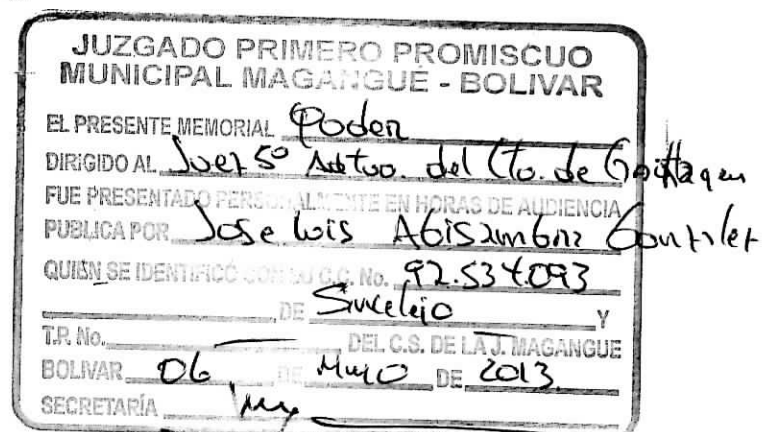 JUZGADO PRIMERO PROMISCUO
MUNICIPAL MAGANGUÉ - BOLIVAR
EL PRESENTE MEMORIAL Poder
DIRIGIDO AL Juez 5º Adtvo. del Cto. de
FUE PRESENTADO PERSONALMENTE EN HORAS DE AUDIENCIA
PUBLICA POR Jose Luis Abisambra Gonzalez
QUIEN SE IDENTIFICÓ CON SU C.C. No. 92.534.093
DE Sincelejo Y
T.P. No. DEL C.S. DE LA J. MAGANGUE
BOLIVAR 06 DE Mayo DE 2013
SECRETARÍA